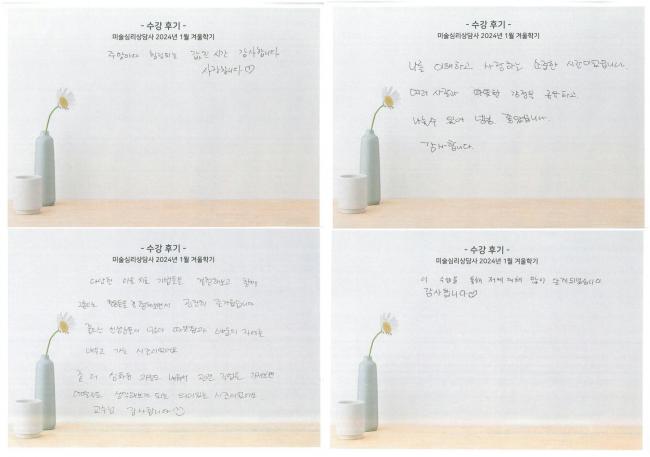 - 수강 후기 -
미술심리상담사 2024년 1월 겨울학기
주말마다 힐링되는 값진 시간 감사합니다
사랑합니다 ♡
- 수강 후기 -
미술심리상담사 2024년 1월 겨울학기
나를 이해하고 사랑하는 소중한 시간이었습니다.
여러 사람과 따뜻한 감정을 공유하고
나눌 수 있어 넘넘 좋았습니다.
감사합니다.
- 수강 후기 -
미술심리상담사 2024년 1월 겨울학기
다양한 미술 치료 기법들을 경험해보고 함께
즐거웠습니다
따뜻함과 지혜를
배우고 가는 시간이었어요
좀 더 심화된 과정도 관련
생각해보게 되는 의미있는 시간이었어요
교수님 감사합니다 ☺
- 수강 후기 -
미술심리상담사 2024년 1월 겨울학기
이 수업을 통해 저에 대해 많이 알게 되었습니다
감사합니다 ♡